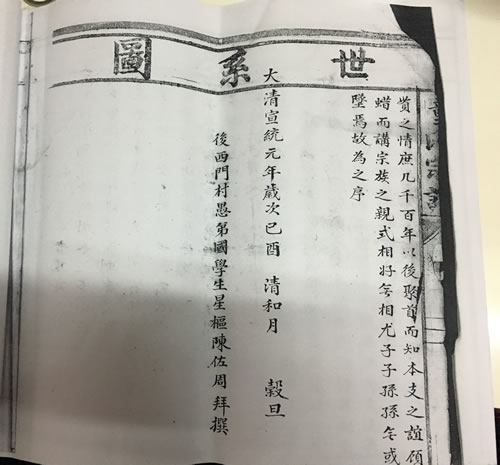 世系圖
賞之情庶几千百年以後聚首而知本支之誼頎
蜡而講宗族之親式相好旡相尤子子孫孫旡或
墜焉故為之序
大清宣統元年歲次己酉 清和月 穀旦
後西門村愚第國學生星樞陳佐周拜撰